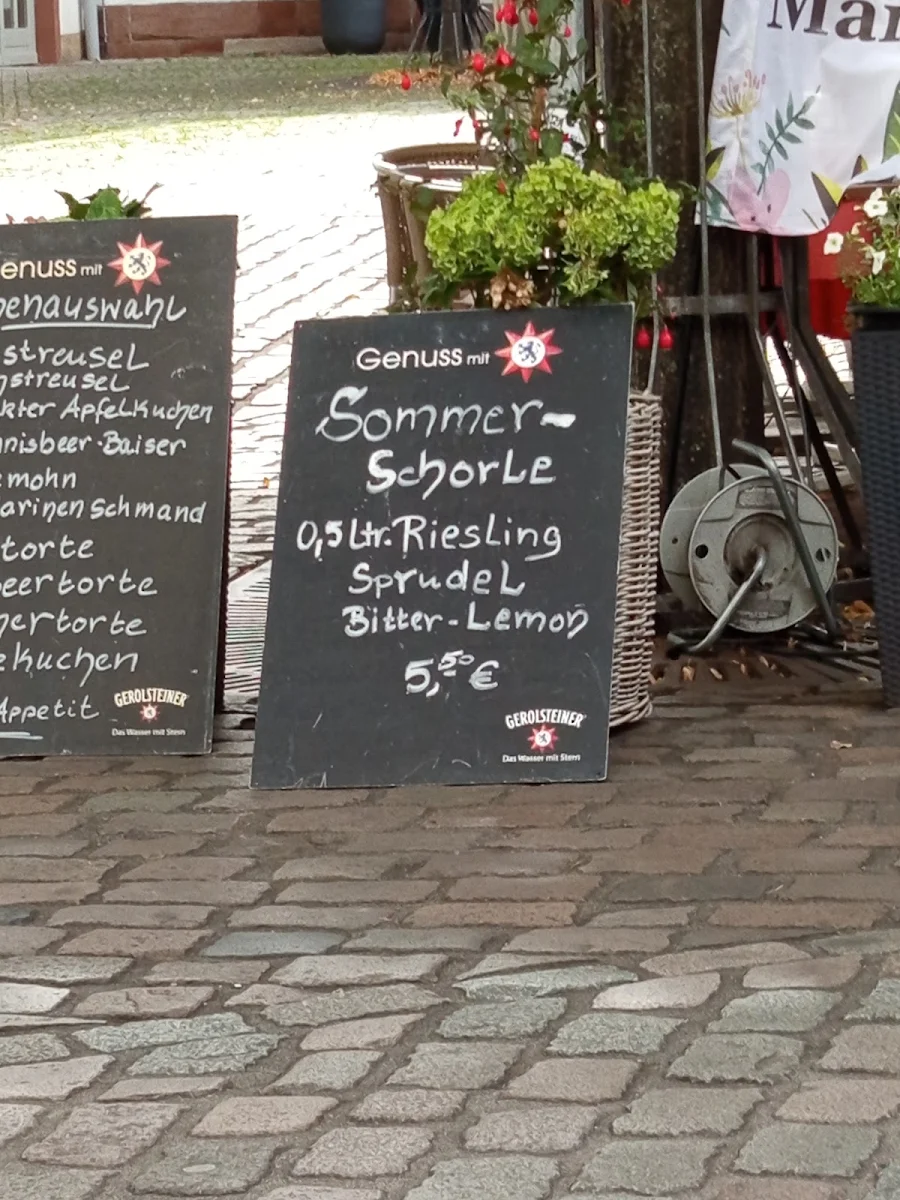 enuss mit
enauswahl
streusel
streusel
kter Apfelkuchen
nisbeer-Baiser
emohn
arinen Schmand
torte
eertorte
ertorte
ekuchen
Appetit
GEROLSTEINER
Das Wasser mit Stern
Genuss mit
Sommer-
Schorle
0,5 Ltr. Riesling
Sprudel
Bitter-Lemon
5,50 €
GEROLSTEINER
Das Wasser mit Stern
Mar